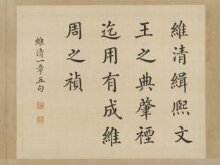 維清緝熙文
王之典肇禋
迄用有成維
周之禎
維清一章五句